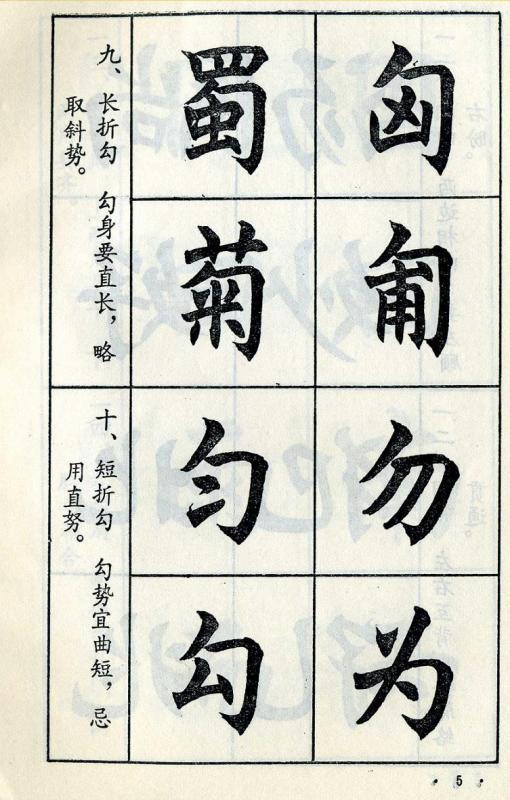 匈
匍
蜀
菊
九、长折勾 勾身要直长，略
取斜势。
勿
为
匀
勾
十、短折勾 勾势宜曲短，忌
用直努。
·5·